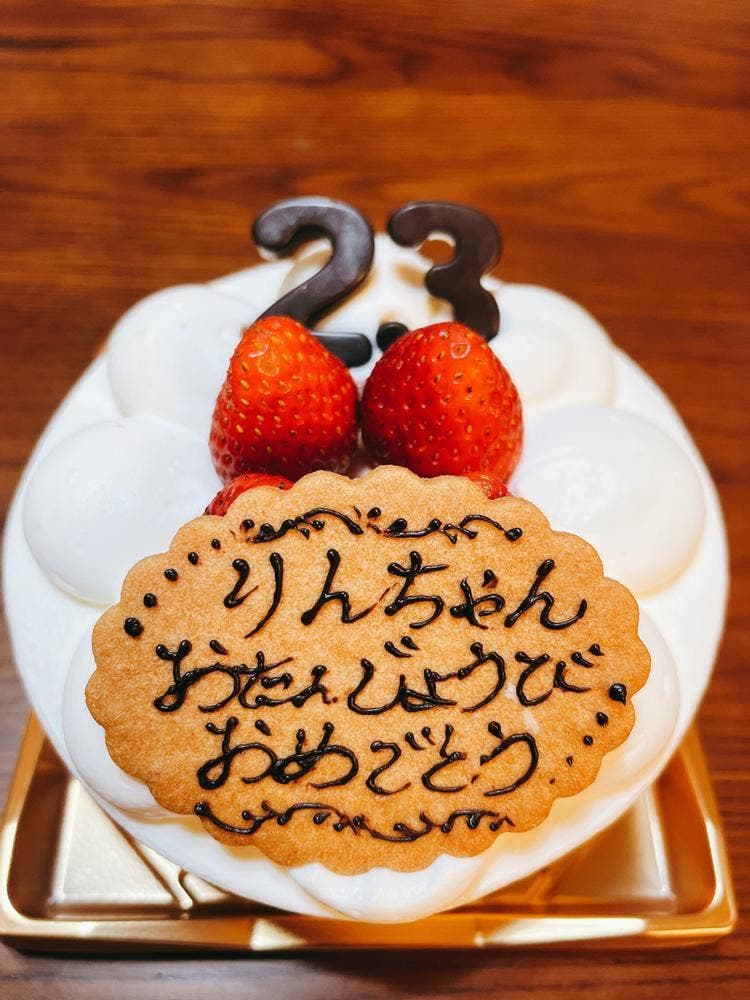 23
りんちゃん
おたんじょうび
おめでとう